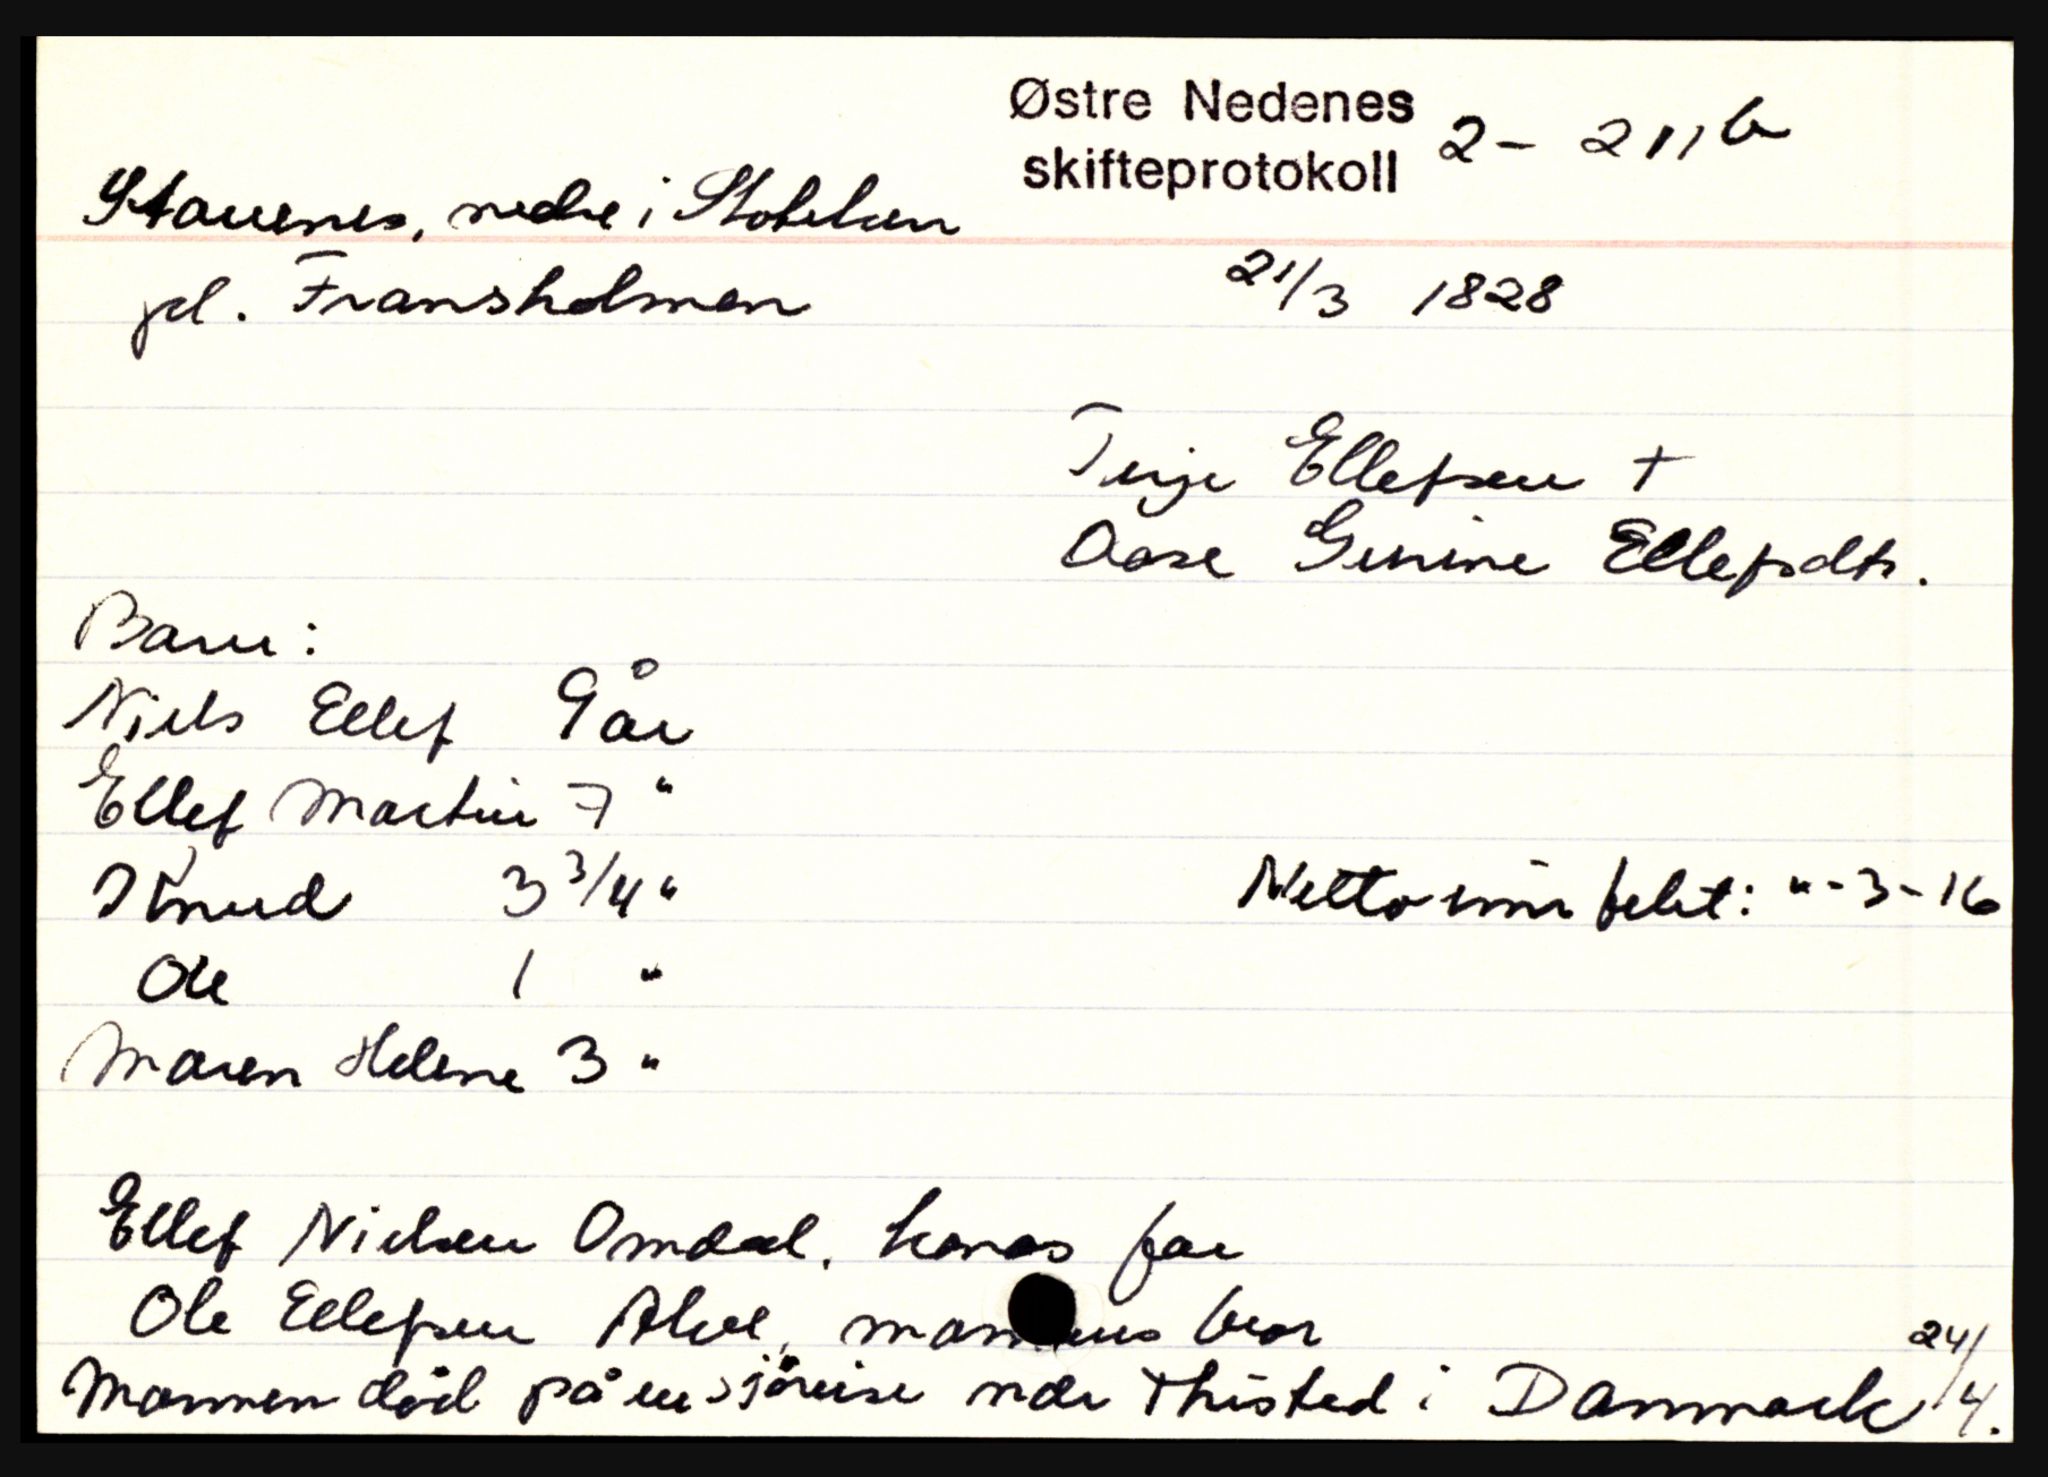 Østre Nedenes
skifteprotokoll 2 - 211b
Stavenes, nedre i Stokeken
pl. Fransholmen 21/3 1828
Terje Ellefsen +
Aase Gurine Ellefsdtr.
Barn:
Niels Ellef 9 år
Ellef Martin 7 "
Knud 3 3/4 "
Netto inn febit: " - 3 - 16
Ole 1 "
Maren Helene 3 "
Ellef Nielsen Omdal, konas far
Ole Ellefsen Alve, mannens bror
Mannen död på en sjöreise når Thisted i Danmark 24/4.